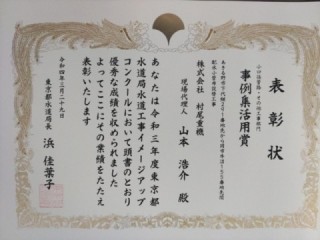 表彰状
小口径管路・その他工事部門
事例集活用賞
配水小管布設替工事
株式会社 村尾重機
現場代理人 山本 浩介 殿
あなたは令和三年度東京都
水道局水道工事イメージアップ
コンクールにおいて頭書のとおり
優秀な成績を収められました
よってここにその業績をたたえ
表彰いたします
令和四年三月二十九日
東京都水道局長 浜 佳葉子